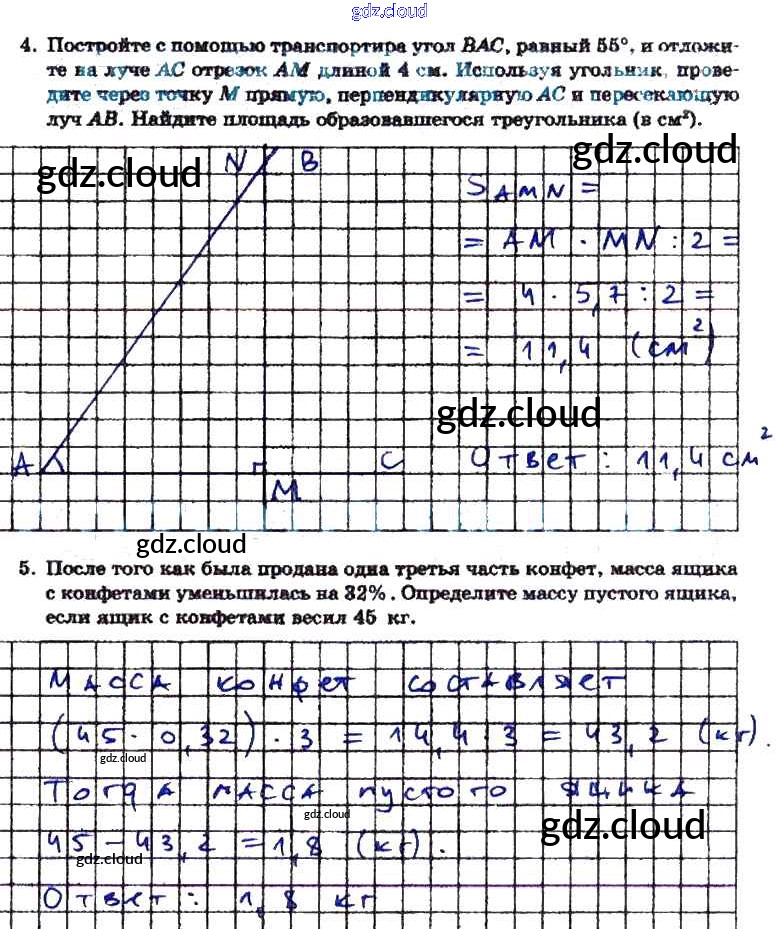 gdz.cloud
4. Постройте с помощью транспортира угол BAC, равный 55°, и отложи-
те на луче AC отрезок AM длиной 4 см. Используя угольник, прове-
дите через точку M прямую, перпендикулярную AC и пересекающую
луч AB. Найдите площадь образовавшегося треугольника (в см²).
gdz.cloud
gdz.cloud
N B
S AMN =
= AM · MN : 2 =
= 4 · 5,7 : 2 =
= 11,4 (см²)
gdz.cloud
A M C
Ответ: 11,4 см²
gdz.cloud
5. После того как была продана одна третья часть конфет, масса ящика
с конфетами уменьшилась на 32%. Определите массу пустого ящика,
если ящик с конфетами весил 45 кг.
Масса конфет составляет
(45 · 0,32) · 3 = 14,4 · 3 = 43,2 (кг).
gdz.cloud
Тогда масса пустого ящика
gdz.cloud
gdz.cloud
45 – 43,2 = 1,8 (кг).
gdz.cloud
Ответ: 1,8 кг